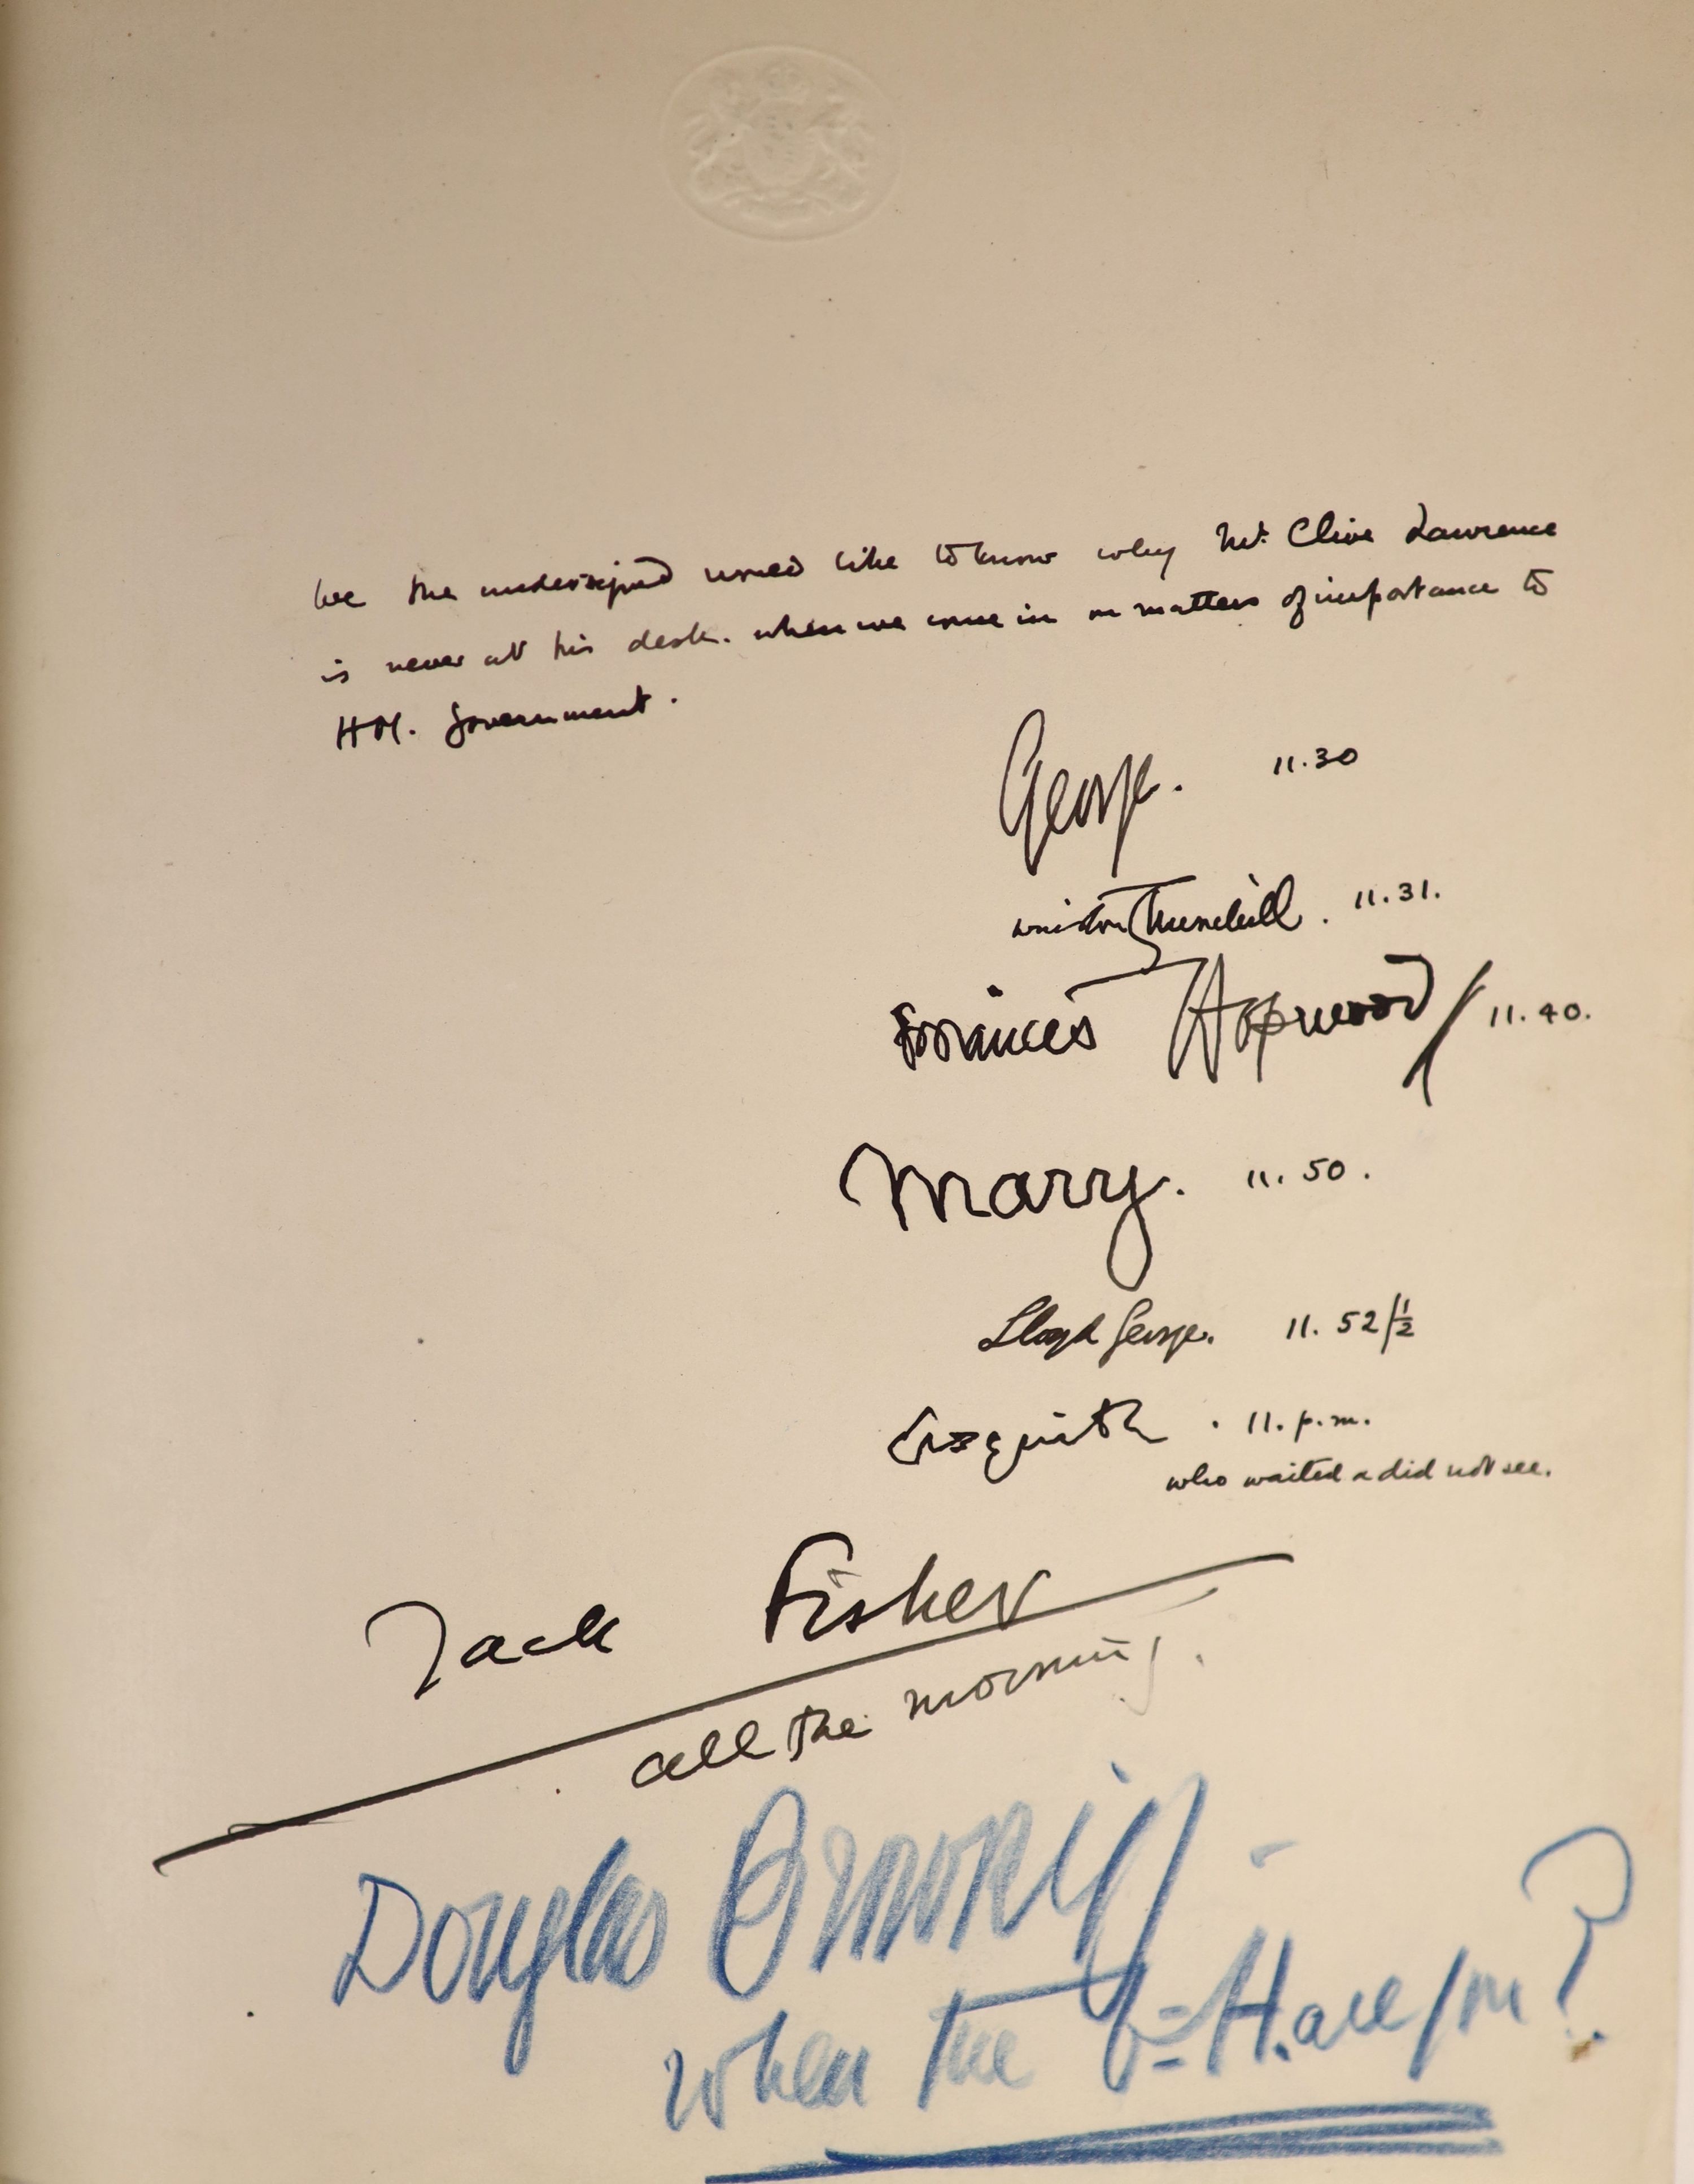 We the undersigned would like to know why Mr. Clive Lawrence
is never at his desk. when we come in on matters of importance to
H M. Government.
George. 11.30
Winston Churchill. 11.31.
Francis Hopwood / 11.40.
Mary. 11.50.
Lloyd George. 11. 52/½
Asquith. 11. p.m.
who waited & did not see.
Jack Fisher
all the morning.
Douglas
When the